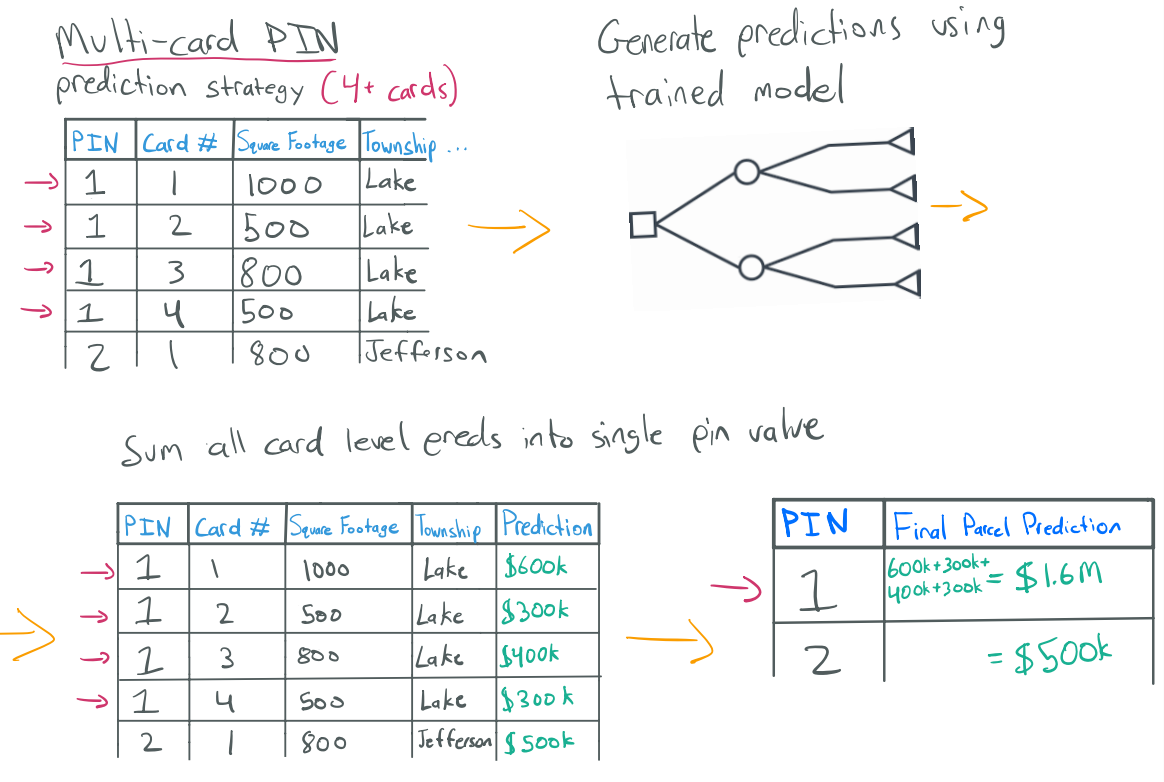 Multi-card PIN
prediction strategy (4+ cards)
PIN Card # Square Footage Township ...
1 1 1000 Lake
1 2 500 Lake
1 3 800 Lake
1 4 500 Lake
2 1 800 Jefferson
Generate predictions using
trained model
Sum all card level preds into single pin value
PIN Card # Square Footage Township Prediction
1 1 1000 Lake $600k
1 2 500 Lake $300k
1 3 800 Lake $400k
1 4 500 Lake $300k
2 1 800 Jefferson $500k
PIN Final Parcel Prediction
1 600k+300k+
400k+300k = $1.6M
2 = $500k